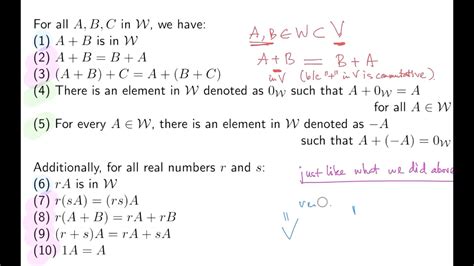 For all A, B, C in 𝒲, we have:
(1) A + B is in 𝒲
(2) A + B = B + A
(3) (A + B) + C = A + (B + C)
(4) There is an element in 𝒲 denoted as 0𝒲 such that A + 0𝒲 = A
for all A ∈ 𝒲
(5) For every A ∈ 𝒲, there is an element in 𝒲 denoted as −A
such that A + (−A) = 0𝒲
Additionally, for all real numbers r and s:
(6) rA is in 𝒲
(7) r(sA) = (rs)A
(8) r(A + B) = rA + rB
(9) (r + s)A = rA + sA
(10) 1A = A
A, B ∈ W ⊂ V
A + B = B + A
in V (b/c "+" in V is commutative)
just like what we did above
V